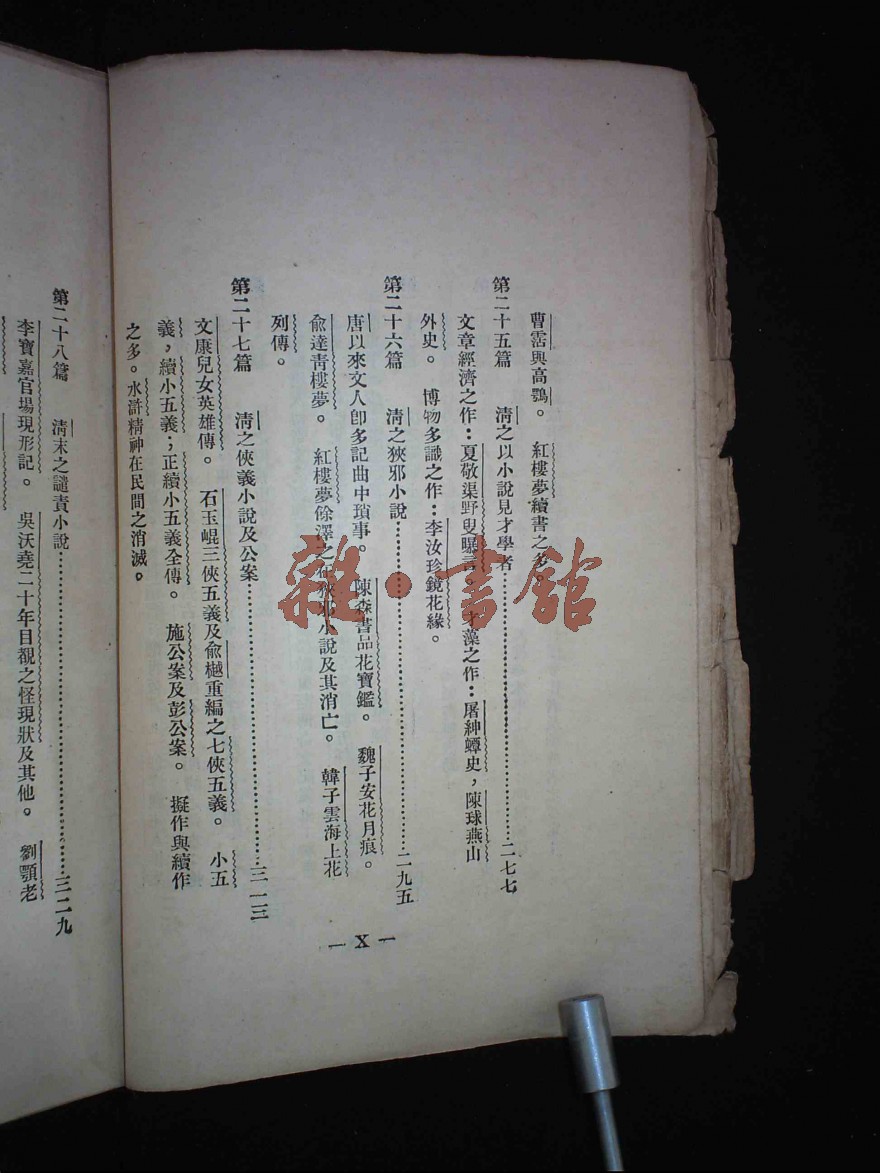 曹霑與高鶚。　紅樓夢續書之多。
第二十五篇　清之以小說見才學者……二七七
文章經濟之作：夏敬渠野叟曝言。　才藻之作：屠紳蟫史，陳球燕山
外史。　博物多識之作：李汝珍鏡花緣。
第二十六篇　清之狹邪小說……二九五
唐以來文人卽多記曲中瑣事。　陳森書品花寶鑑。　魏子安花月痕。
俞達靑樓夢。　紅樓夢餘澤之在狹邪小說及其消亡。　韓子雲海上花
列傳。
第二十七篇　清之俠義小說及公案……三一三
文康兒女英雄傳。　石玉崐三俠五義及俞樾重編之七俠五義。　小五
義，續小五義；正續小五義全傳。　施公案及彭公案。　擬作與續作
之多。水滸精神在民間之消滅。
— X —
第二十八篇　清末之譴責小說……三二九
李寶嘉官場現形記。　吳沃堯二十年目覩之怪現狀及其他。　劉鶚老
雜·書館